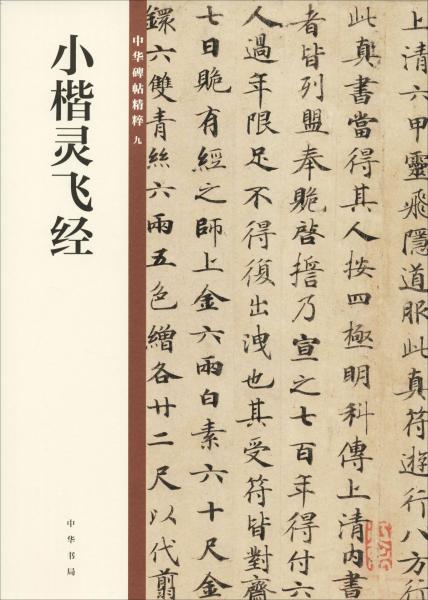 小楷灵飞经
中华碑帖精粹 九
中华书局
上清六甲靈飛隱道服此真符遊行八方行
此真書當得其人按四極明科傳上清內書
者皆列盟奉貺啓擔乃宣之七百年得付六
人過年限足不得復出洩也其受符皆對齋
七日貺有經之師上金六兩白素六十尺金
鐶六雙青絲六兩五色繒各廿二尺以代翦